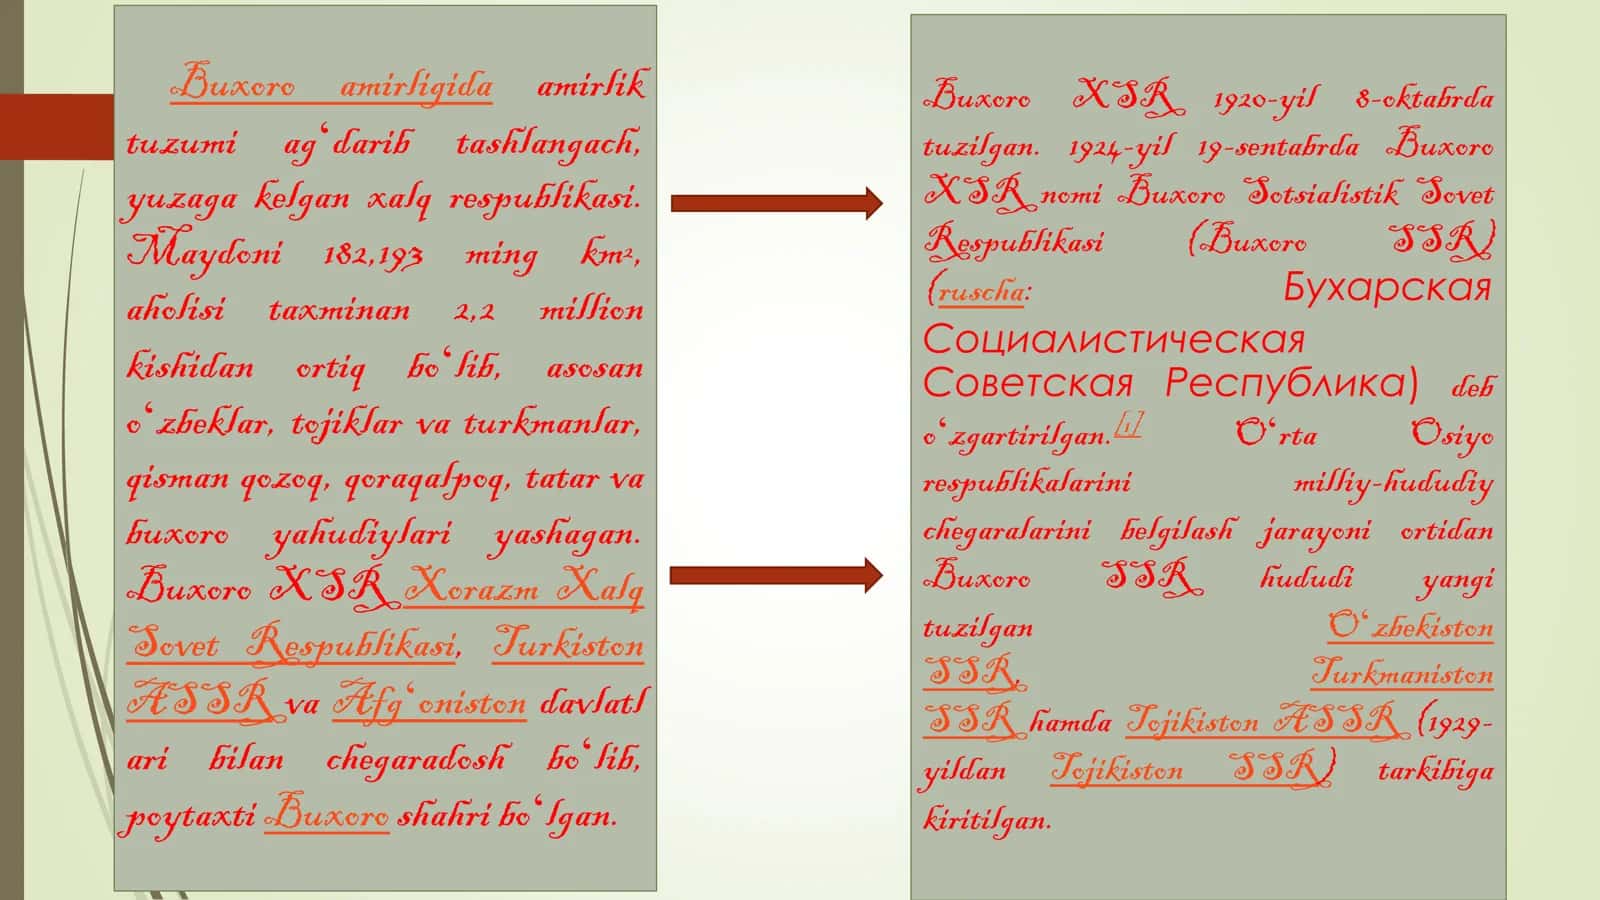 Buxoro amirligida amirlik
tuzumi agʻdarib tashlangach,
yuzaga kelgan xalq respublikasi.
Maydoni 182,193 ming km²,
aholisi taxminan 2,2 million
kishidan ortiq boʻlib, asosan
oʻzbeklar, tojiklar va turkmanlar,
qisman qozoq, qoraqalpoq, tatar va
buxoro yahudiylari yashagan.
Buxoro XSR Xorazm Xalq
Sovet Respublikasi, Turkiston
ASSR va Afgʻoniston davlatl
ari bilan chegaradosh boʻlib,
poytaxti Buxoro shahri boʻlgan.
Buxoro XSR 1920-yil 8-oktabrda
tuzilgan. 1924-yil 19-sentabrda Buxoro
XSR nomi Buxoro Sotsialistik Sovet
Respublikasi (Buxoro SSR)
(ruscha: Бухарская
Социалистическая
Советская Республика) deb
oʻzgartirilgan.[1] Oʻrta Osiyo
respublikalarini milliy-hududiy
chegaralarini belgilash jarayoni ortidan
Buxoro SSR hududi yangi
tuzilgan Oʻzbekiston
SSR, Turkmaniston
SSR hamda Tojikiston ASSR (1929-
yildan Tojikiston SSR) tarkibiga
kiritilgan.